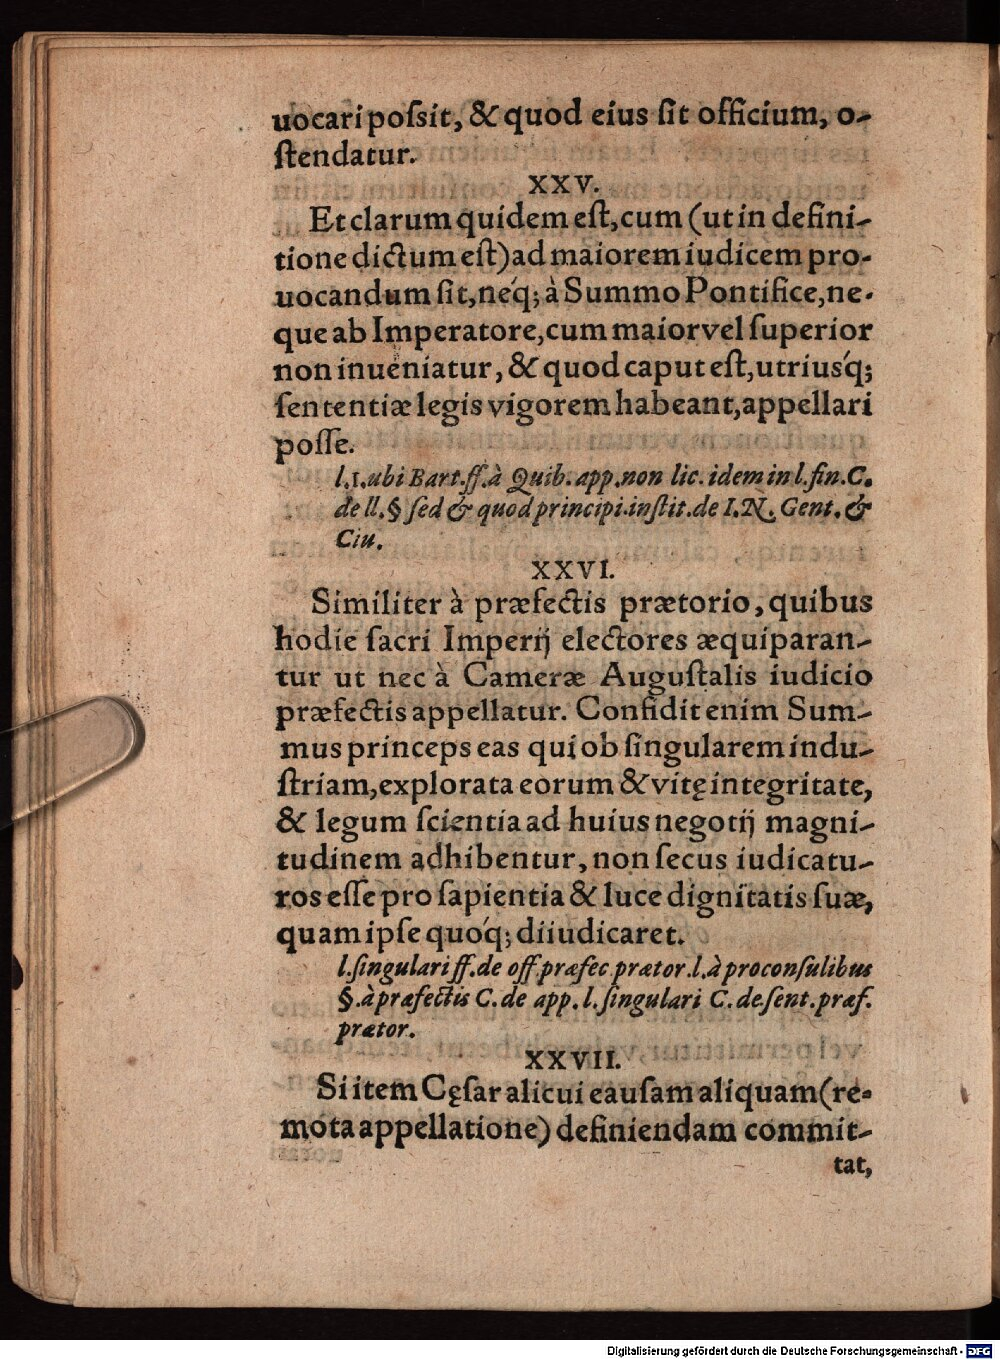 uocari poſsit, & quod eius ſit officium, o-
ſtendatur.
XXV.
Et clarum quidem eſt, cum (ut in defini-
tione dictum eſt) ad maiorem iudicem pro-
uocandum ſit, neq́; à Summo Pontifice, ne-
que ab Imperatore, cum maior vel ſuperior
non inueniatur, & quod caput eſt, utriusq́;
ſententiæ legis vigorem habeant, appellari
poſſe.
l.1. ubi Bart. ff. à Quib. app. non lic. idem in l. fin. C.
de ll. § ſed & quod principi. inſtit. de I. N. Gent. &
Ciu.
XXVI.
Similiter à præfectis prætorio, quibus
hodie ſacri Imperij electores æquiparan-
tur ut nec à Cameræ Auguſtalis iudicio
præfectis appellatur. Confidit enim Sum-
mus princeps eas qui ob ſingularem indu-
ſtriam, explorata eorum & vitę integritate,
& legum ſcientia ad huius negotij magni-
tudinem adhibentur, non ſecus iudicatu-
ros eſſe pro ſapientia & luce dignitatis ſuæ,
quam ipſe quoq́; diiudicaret.
l. ſingulari ff. de off. præfec prætor. l. à proconſulibus
§. à præfectis C. de app. l. ſingulari C. de ſent. præf.
prætor.
XXVII.
Si item Cęſar alicui eauſam aliquam (re-
mota appellatione) definiendam commit-
tat,
Digitalisierung gefördert durch die Deutsche Forschungsgemeinschaft - DFG